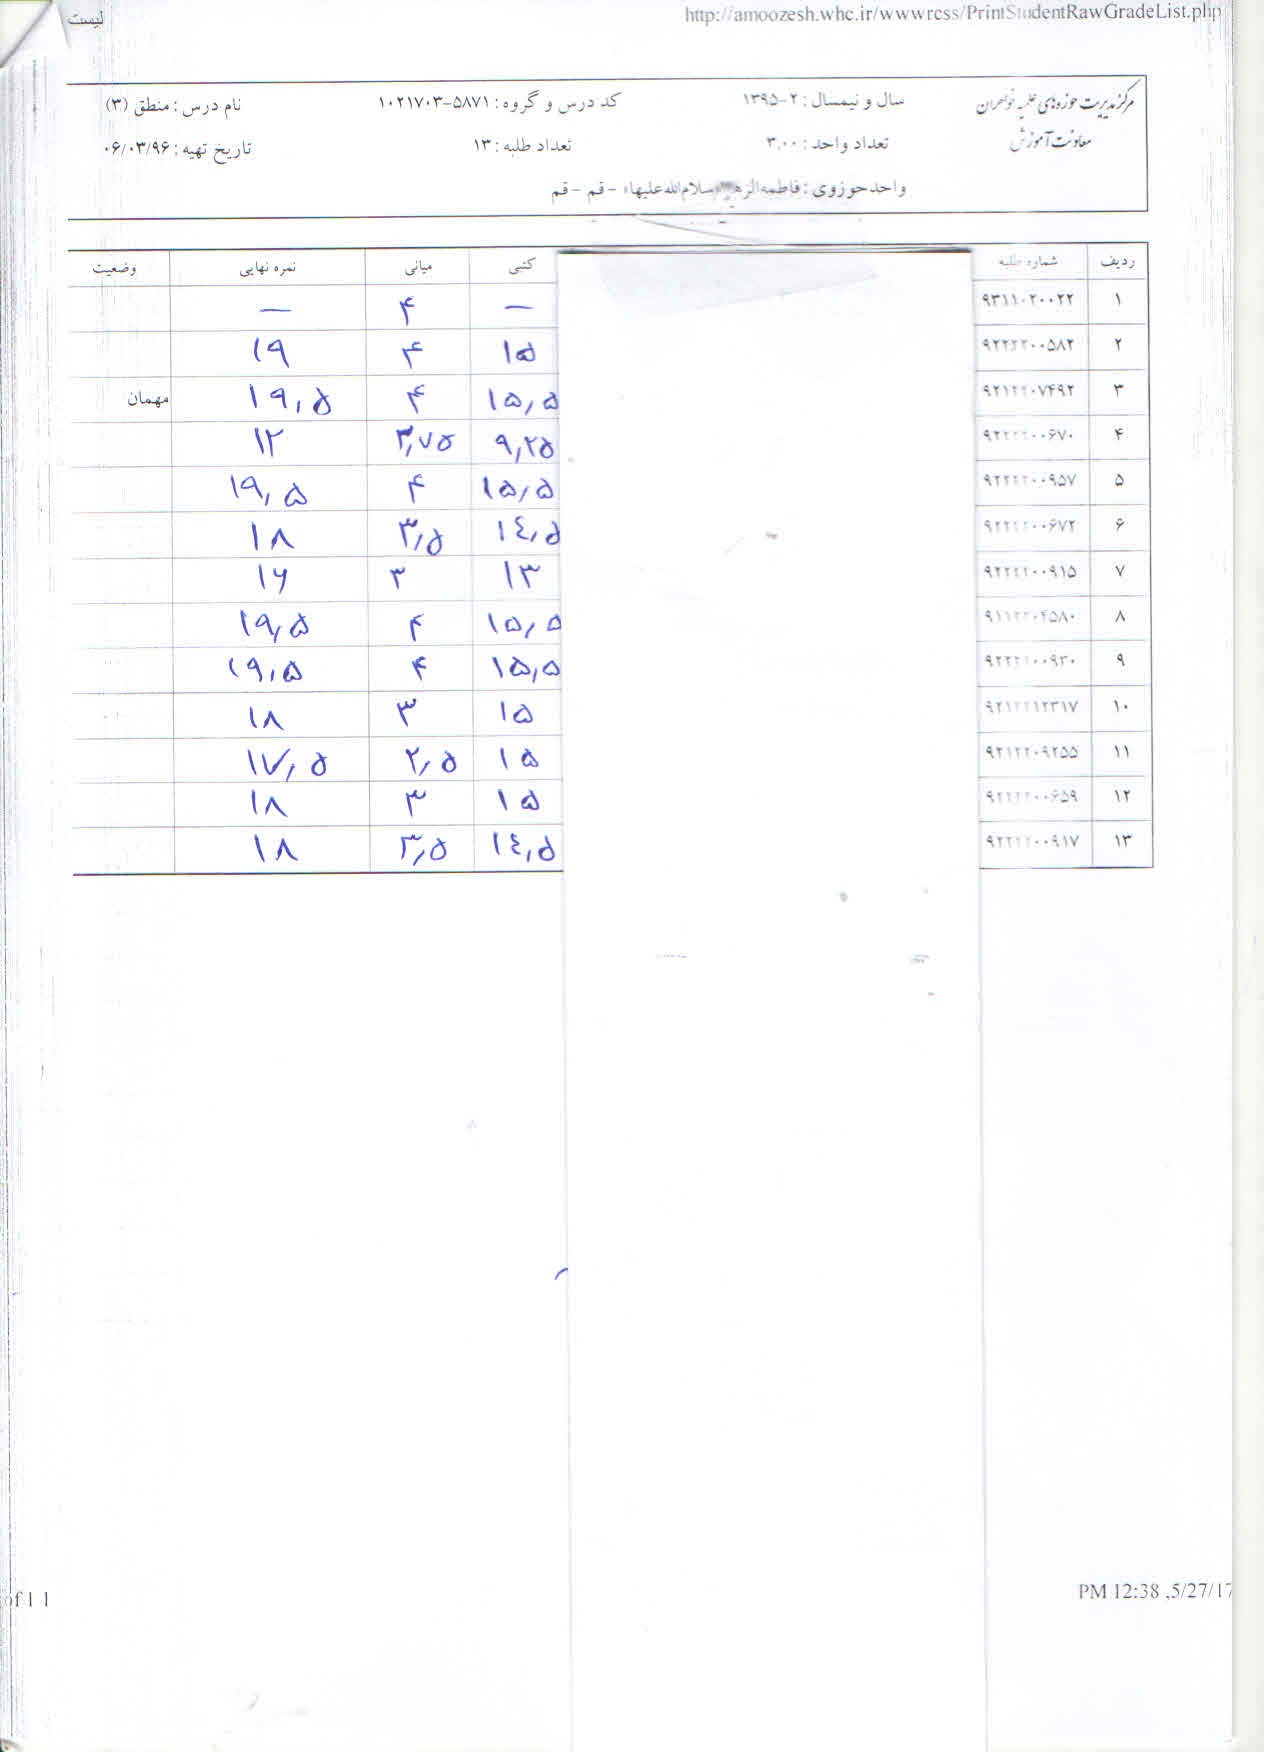 لیست
http://amoozesh.whc.ir/wwwrcss/PrintStudentRawGradeList.php
مرکز مدیریت حوزه‌های علمیه خواهران سال و نیمسال : ۲-۱۳۹۵ کد درس و گروه : ۵۸۷۱-۱۰۲۱۷۰۳ نام درس : منطق (۳)
معاونت آموزش تعداد واحد : ۳.۰۰ تعداد طلبه : ۱۳ تاریخ تهیه : ۰۶/۰۳/۹۶
واحد حوزوی : فاطمه الزهرا سلام‌الله‌علیها - قم - قم
ردیف شماره طلبه کتبی میانی نمره نهایی وضعیت
۱ ۹۳۱۱۰۲۰۰۲۲ — ۴ —
۲ ۹۲۲۲۲۰۰۵۸۲ ۱۵ ۴ ۱۹
۳ ۹۲۱۲۲۰۷۴۹۲ ۱۵٫۵ ۴ ۱۹٫۵ مهمان
۴ ۹۲۲۲۲۰۰۶۷۰ ۹٫۲۵ ۳٫۷۵ ۱۲
۵ ۹۲۲۲۲۰۰۹۵۷ ۱۵٫۵ ۴ ۱۹٫۵
۶ ۹۲۲۲۲۰۰۶۷۲ ۱٤٫۵ ۳٫۵ ۱۸
۷ ۹۲۲۲۲۰۰۹۱۵ ۱۳ ۳ ۱۶
۸ ۹۱۱۲۲۰۴۵۸۰ ۱۵٫۵ ۴ ۱۹٫۵
۹ ۹۲۲۲۲۰۰۹۳۰ ۱۵٫۵ ۴ ۱۹٫۵
۱۰ ۹۲۱۲۲۱۲۳۱۷ ۱۵ ۳ ۱۸
۱۱ ۹۲۱۲۲۰۹۲۵۵ ۱۵ ۲٫۵ ۱۷٫۵
۱۲ ۹۲۲۲۲۰۰۶۵۹ ۱۵ ۳ ۱۸
۱۳ ۹۲۲۲۲۰۰۹۱۷ ۱٤٫۵ ۳٫۵ ۱۸
of 1 1
PM 12:38 ,5/27/17